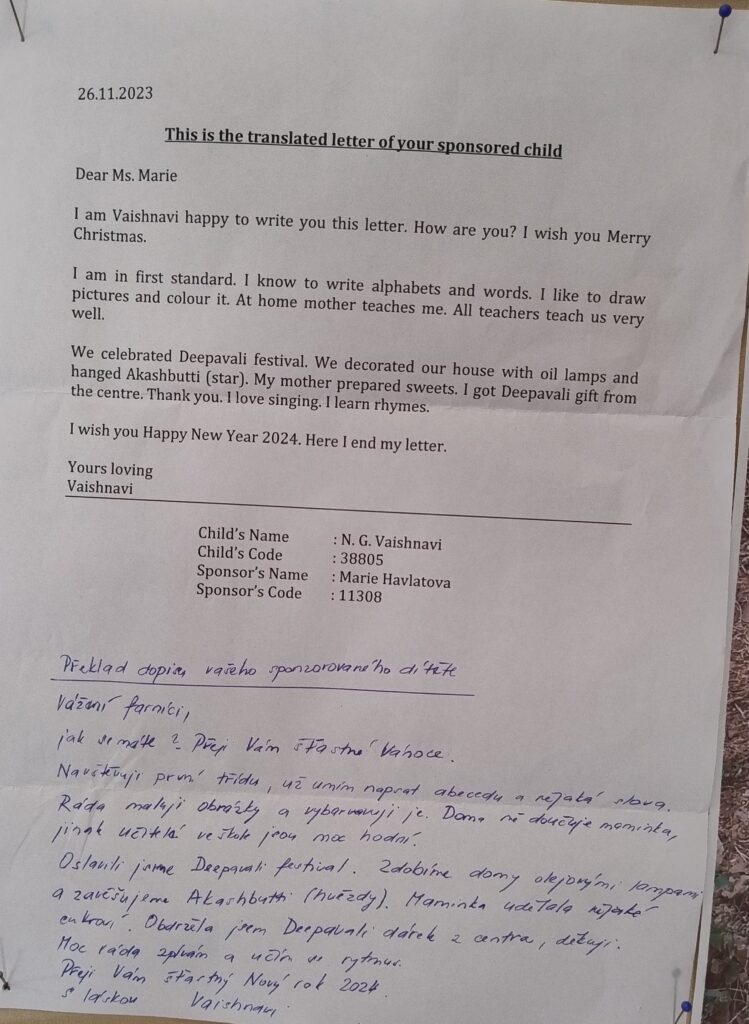 26.11.2023
This is the translated letter of your sponsored child
Dear Ms. Marie
I am Vaishnavi happy to write you this letter. How are you? I wish you Merry
Christmas.
I am in first standard. I know to write alphabets and words. I like to draw
pictures and colour it. At home mother teaches me. All teachers teach us very
well.
We celebrated Deepavali festival. We decorated our house with oil lamps and
hanged Akashbutti (star). My mother prepared sweets. I got Deepavali gift from
the centre. Thank you. I love singing. I learn rhymes.
I wish you Happy New Year 2024. Here I end my letter.
Yours loving
Vaishnavi
Child's Name : N. G. Vaishnavi
Child's Code : 38805
Sponsor's Name : Marie Havlatova
Sponsor's Code : 11308
Překlad dopisu vašeho sponzorovaného dítěte
Vážení farníci,
jak se máte? Přeji Vám šťastné Vánoce.
Navštěvuji první třídu, už umím napsat abecedu a nějaká slova.
Ráda maluji obrázky a vybarvuji je. Doma mě doučuje maminka,
jinak učitelé ve škole jsou moc hodní.
Oslavili jsme Deepavali festival. Zdobíme domy olejovými lampami
a zavěšujeme Akashbutti (hvězdy). Maminka udělala nějaké
cukroví. Obdržela jsem Deepavali dárek z centra, děkuji.
Moc ráda zpívám a učím se rytmus.
Přeji Vám šťastný Nový rok 2024.
S láskou Vaishnavi